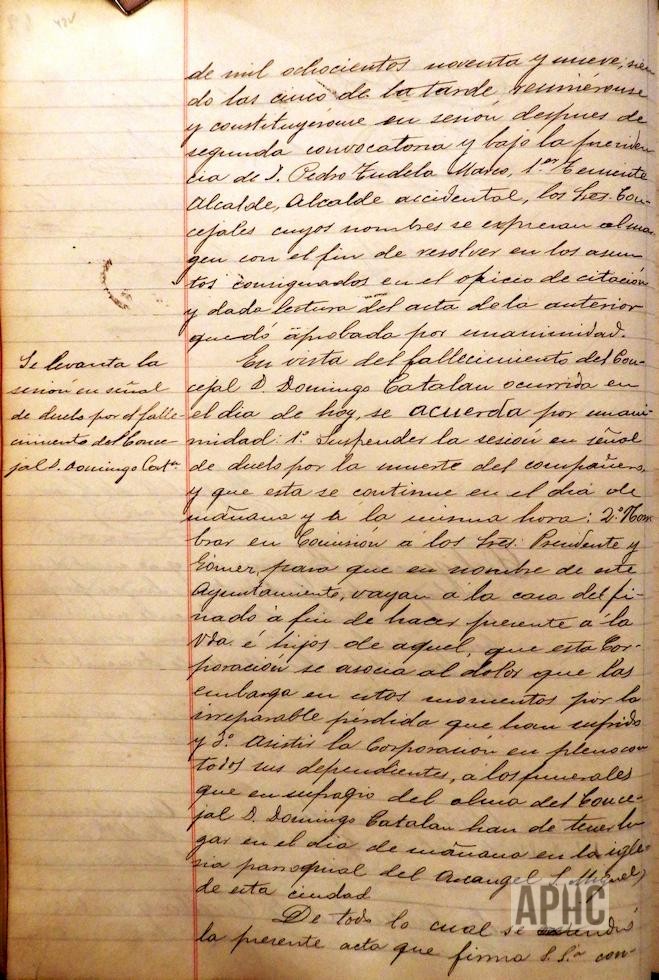 de mil ochocientos noventa y nueve, sien
do las cinco de la tarde, reuniéronse
y constituyéronse en sesión despues de
segunda convocatoria y bajo la presiden
cia de D. Pedro Tudela Marco, 1.er Teniente
Alcalde, Alcalde accidental, los Sres. Con-
cejales cuyos nombres se expresan al mar
gen con el fin de resolver en los asun
tos consignados en el oficio de citación
y dada lectura del acta de la anterior
quedó aprobada por unanimidad.
Se levanta la
sesión en señal
de duelo por el falle-
cimiento del Conce-
jal D. Domingo Catn.
En vista del fallecimiento del Con-
cejal D. Domingo Catalan ocurrida en
el dia de hoy, se acuerda por unani-
midad: 1º Suspender la sesión en señal
de duelo por la muerte del compañero,
y que esta se continue en el dia de
mañana y á la misma hora: 2º Nom
brar en Comisión á los Sres. Presidente y
para que en nombre de este
Ayuntamiento, vayan á la casa del fi-
nado á fin de hacer presente á la
Vda. é hijos de aquel, que esta Cor-
poración se asocia al dolor que las
embarga en estos momentos por la
irreparable pérdida que han sufrido
y 3º Asistir la Corporación en pleno con
todos sus dependientes, á los funerales
que en sufragio del alma del Conce-
jal D. Domingo Catalan han de tener lu
gar en el dia de mañana en la igle-
sia parroquial del Arcangel S. Miguel,
de esta ciudad
De todo lo cual se
la presente acta que firma S.Sª con-
APHC